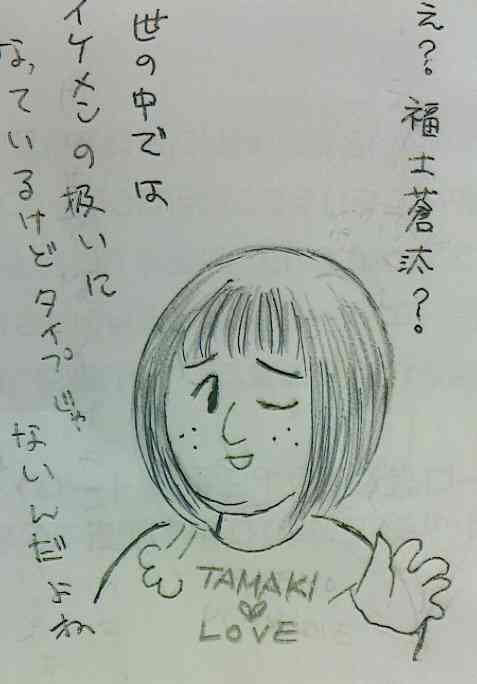 え?。福士蒼汰?。
世の中では
イケメンの扱いに
なっているけどタイプじゃ
ないんだよね
TAMAKI
LOVE